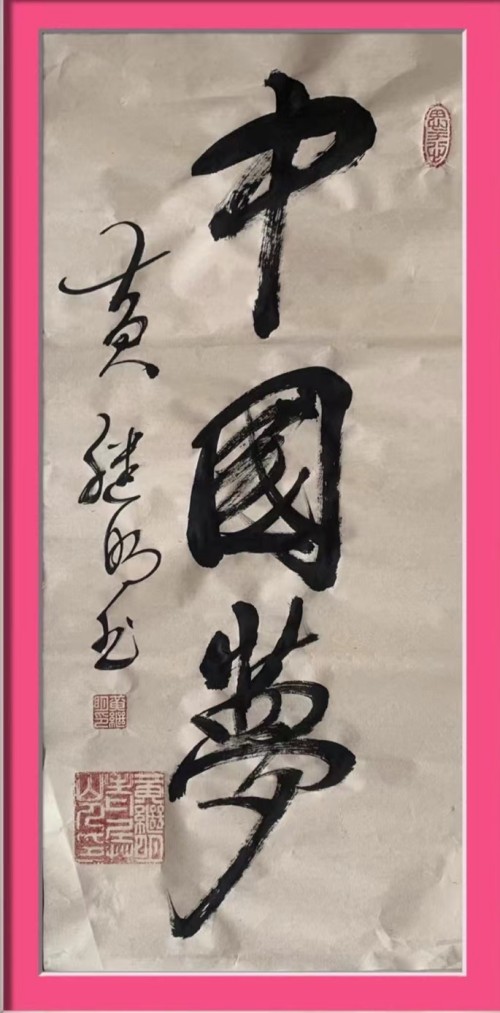 中國夢
黄继明书